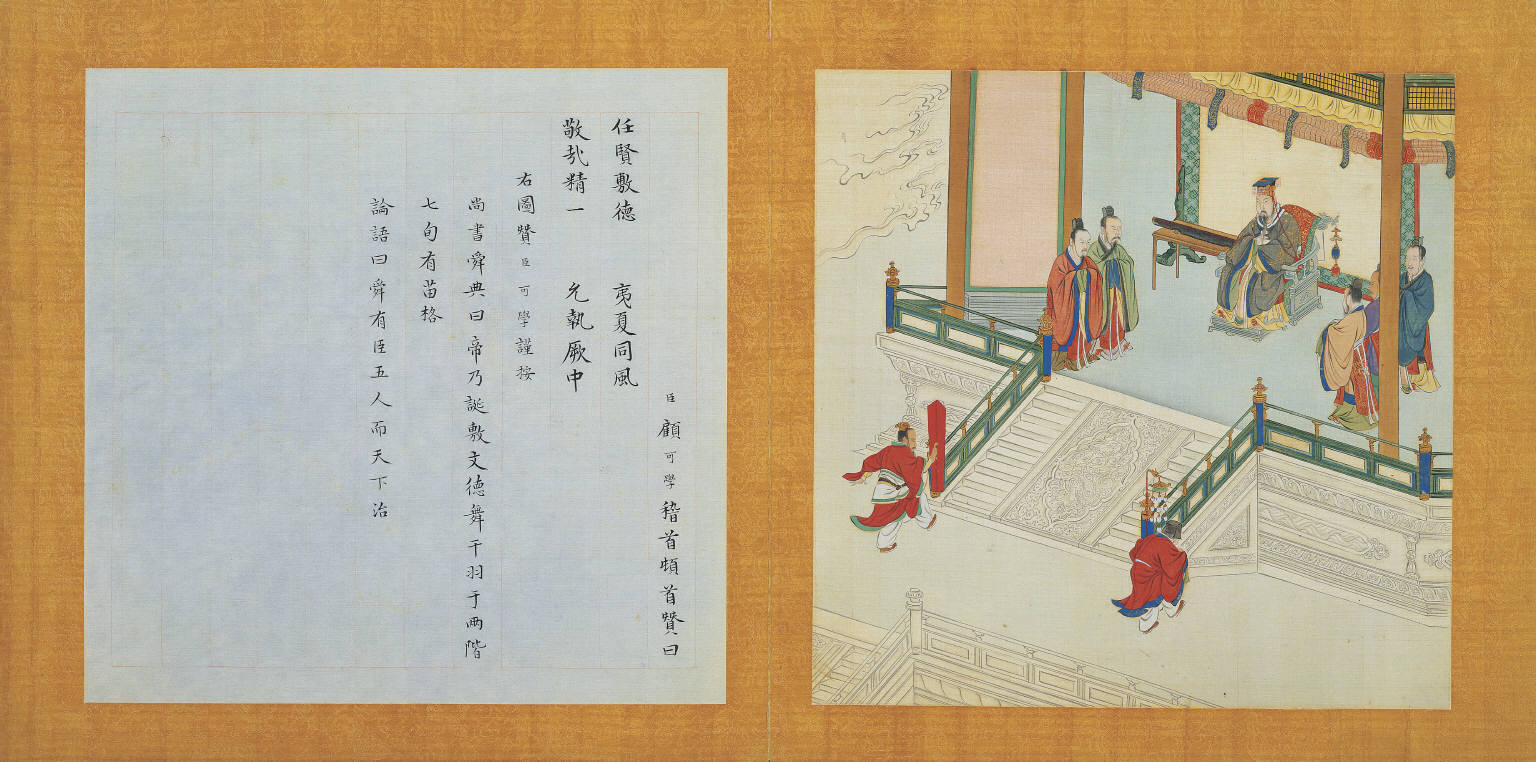 臣顧可學稽首頓首贊曰
任賢敷德 夷夏同風
敬哉精一 允執厥中
右圖贊臣可學謹按
尚書舜典曰帝乃誕敷文德舞干羽于兩階
七旬有苗格
論語曰舜有臣五人而天下治